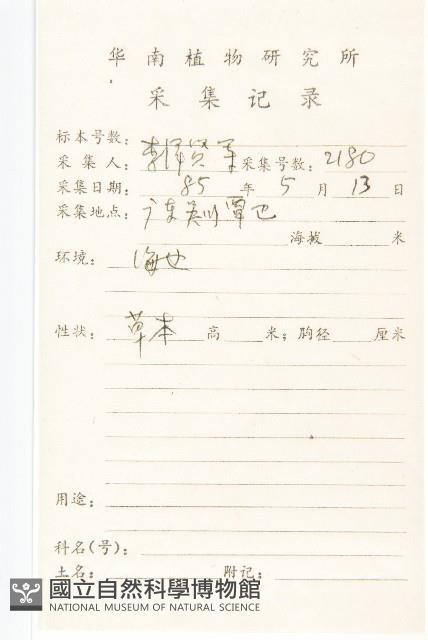 华南植物研究所
采集记录
标本号数:
采集人: 李泽贤 等 采集号数: 2180
采集日期: 85 年 5 月 13 日
采集地点: 广东吴川覃巴
海拔 米
环境: 海边
性状: 草本 高 米; 胸径 厘米
用途:
科名(号):
土名: 附记:
國立自然科學博物館
NATIONAL MUSEUM OF NATURAL SCIENCE